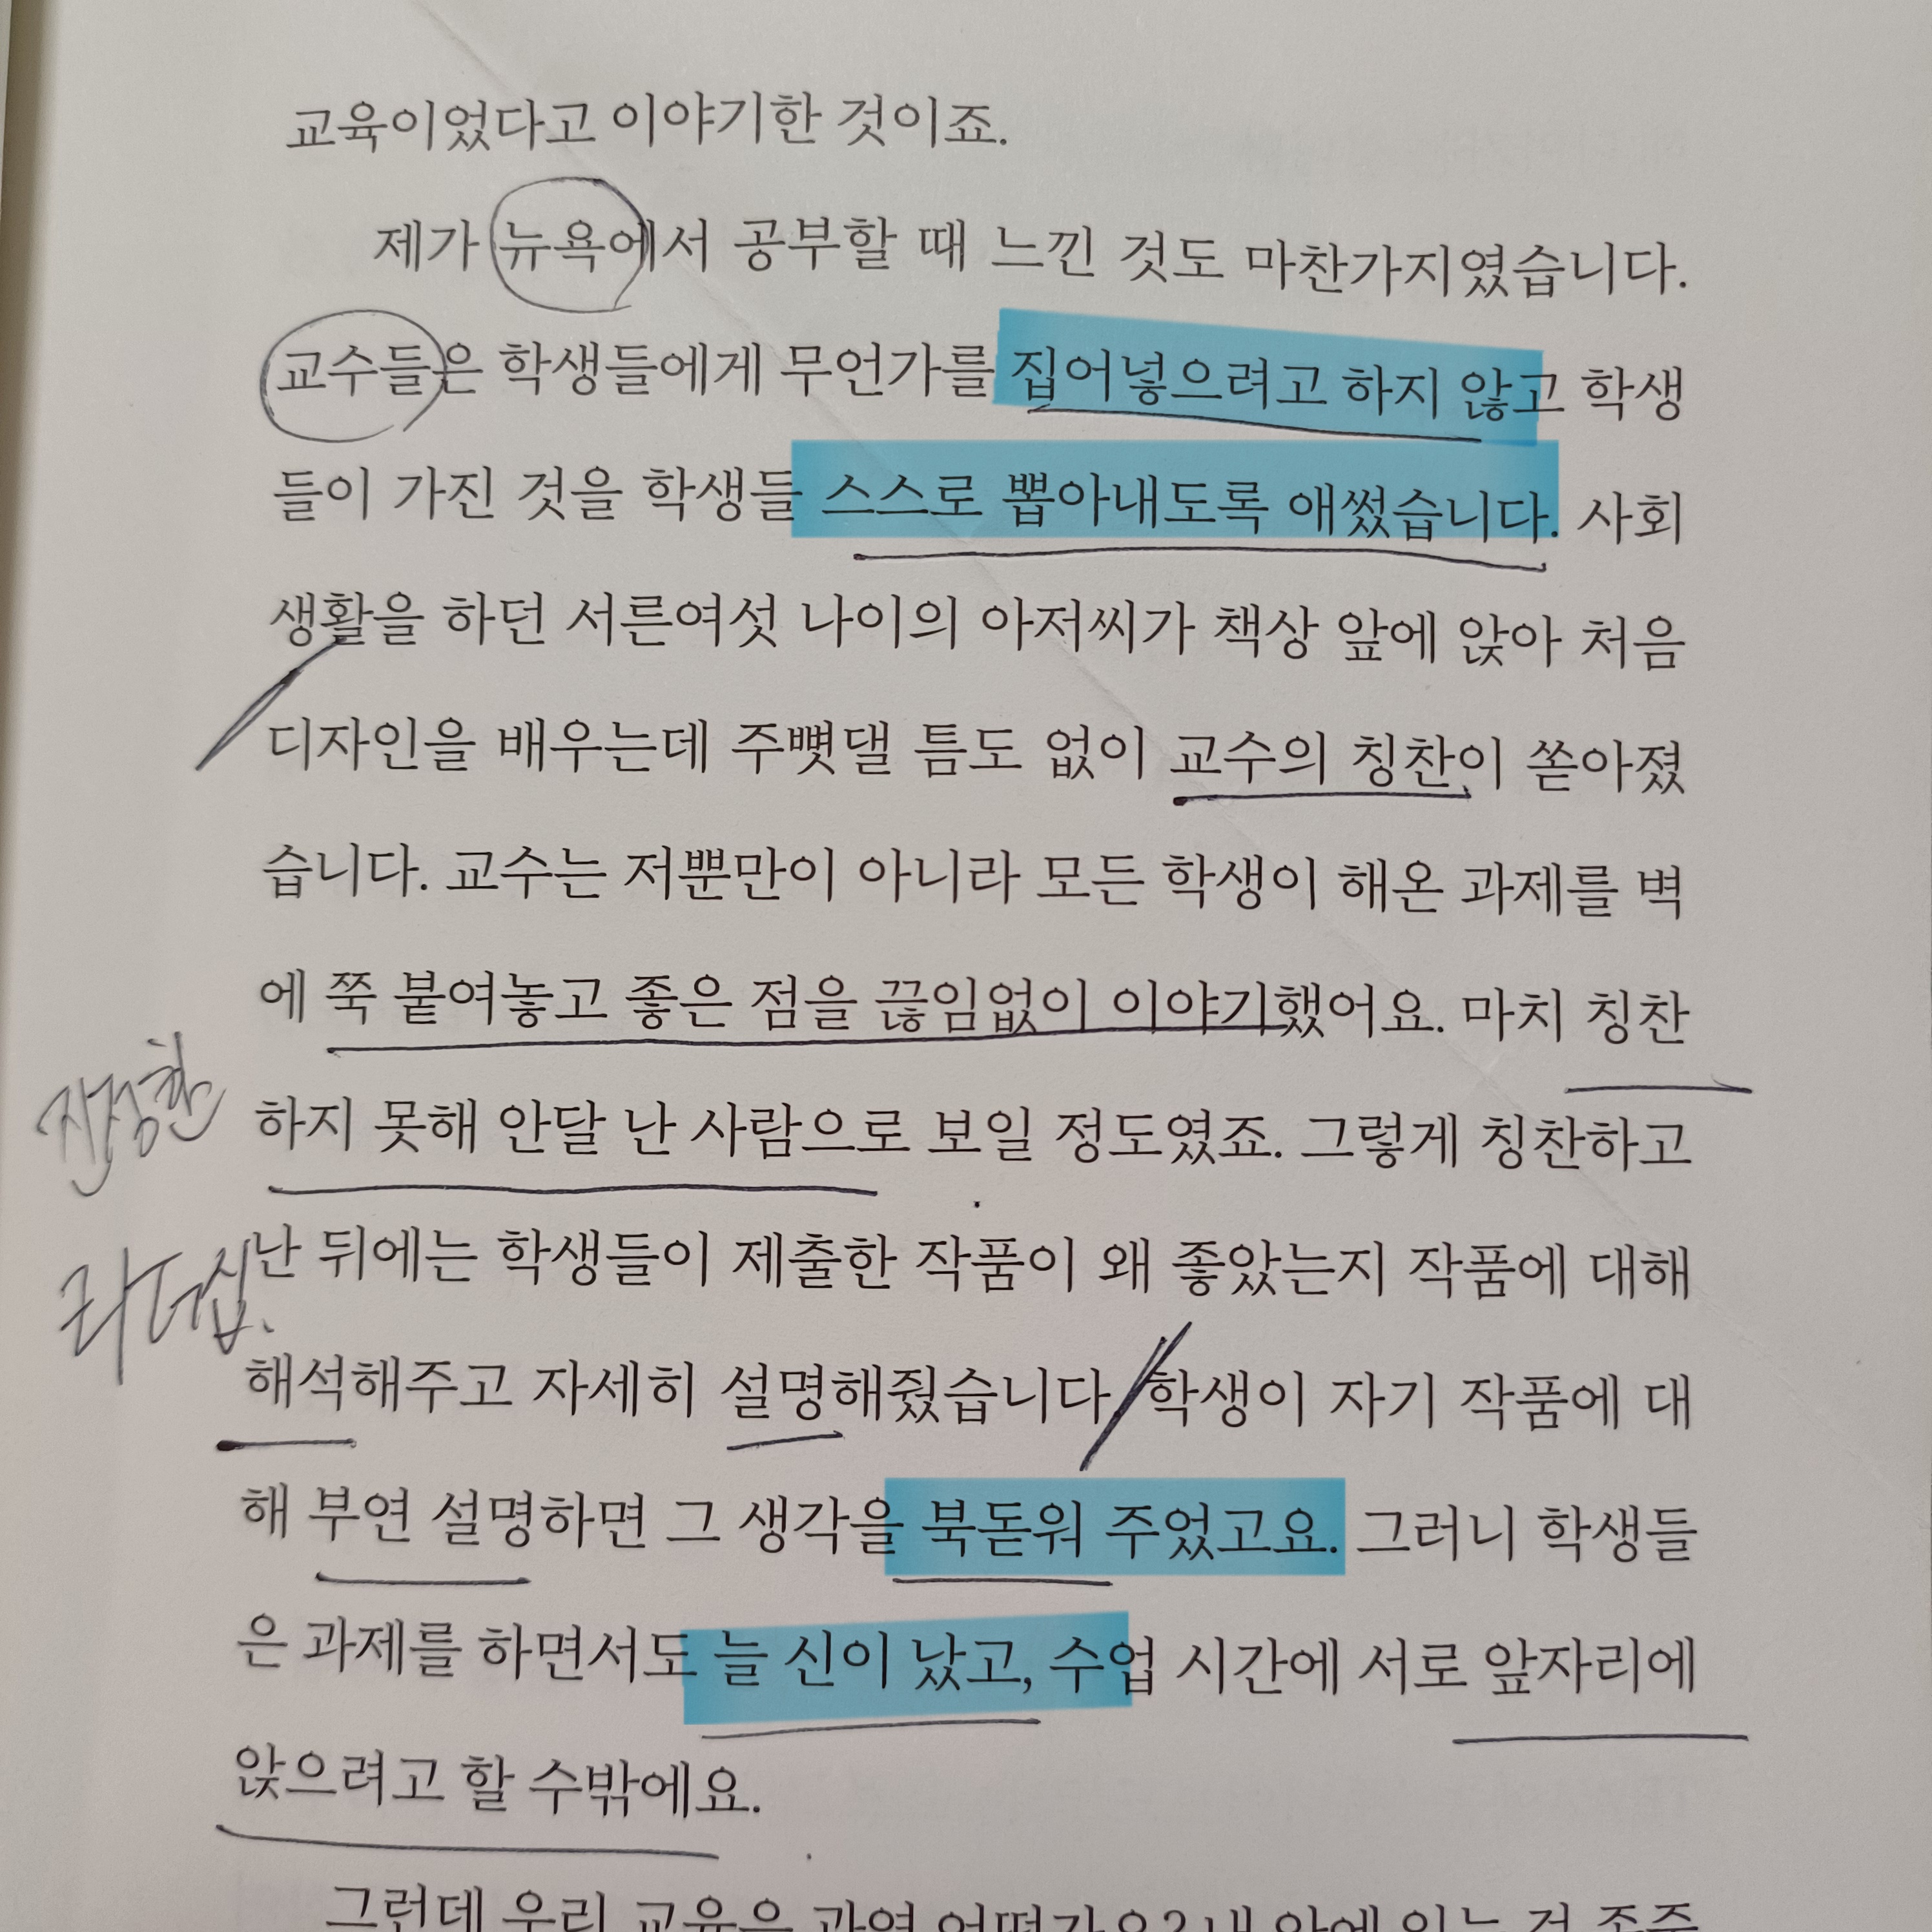 교육이었다고 이야기한 것이죠.
제가 뉴욕에서 공부할 때 느낀 것도 마찬가지였습니다.
교수들은 학생들에게 무언가를 집어넣으려고 하지 않고 학생
들이 가진 것을 학생들 스스로 뽑아내도록 애썼습니다. 사회
생활을 하던 서른여섯 나이의 아저씨가 책상 앞에 앉아 처음
디자인을 배우는데 주뼛댈 틈도 없이 교수의 칭찬이 쏟아졌
습니다. 교수는 저뿐만이 아니라 모든 학생이 해온 과제를 벽
에 쭉 붙여놓고 좋은 점을 끊임없이 이야기했어요. 마치 칭찬
진정한
하지 못해 안달 난 사람으로 보일 정도였죠. 그렇게 칭찬하고
리더십.
난 뒤에는 학생들이 제출한 작품이 왜 좋았는지 작품에 대해
해석해주고 자세히 설명해줬습니다. 학생이 자기 작품에 대
해 부연 설명하면 그 생각을 북돋워 주었고요. 그러니 학생들
은 과제를 하면서도 늘 신이 났고, 수업 시간에 서로 앞자리에
앉으려고 할 수밖에요.
그런데 우리 교육은 과연 어떤가요? 내 안에 있는 걸 존중